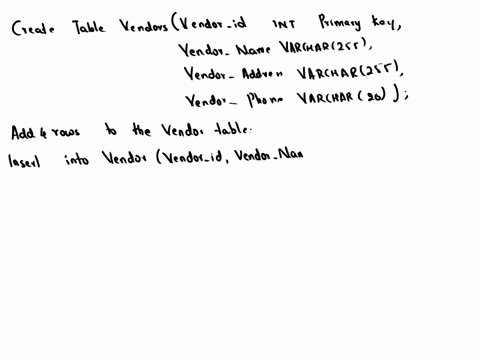 Create Table Vendors (Vendor_id INT Primary key,
Vendor_Name VARCHAR(255),
Vendor_Address VARCHAR(255),
Vendor_Phone VARCHAR(20));
Add 4 rows to the Vendor table.
Insert into Vendor (Vendor_id, Vendor_Nam